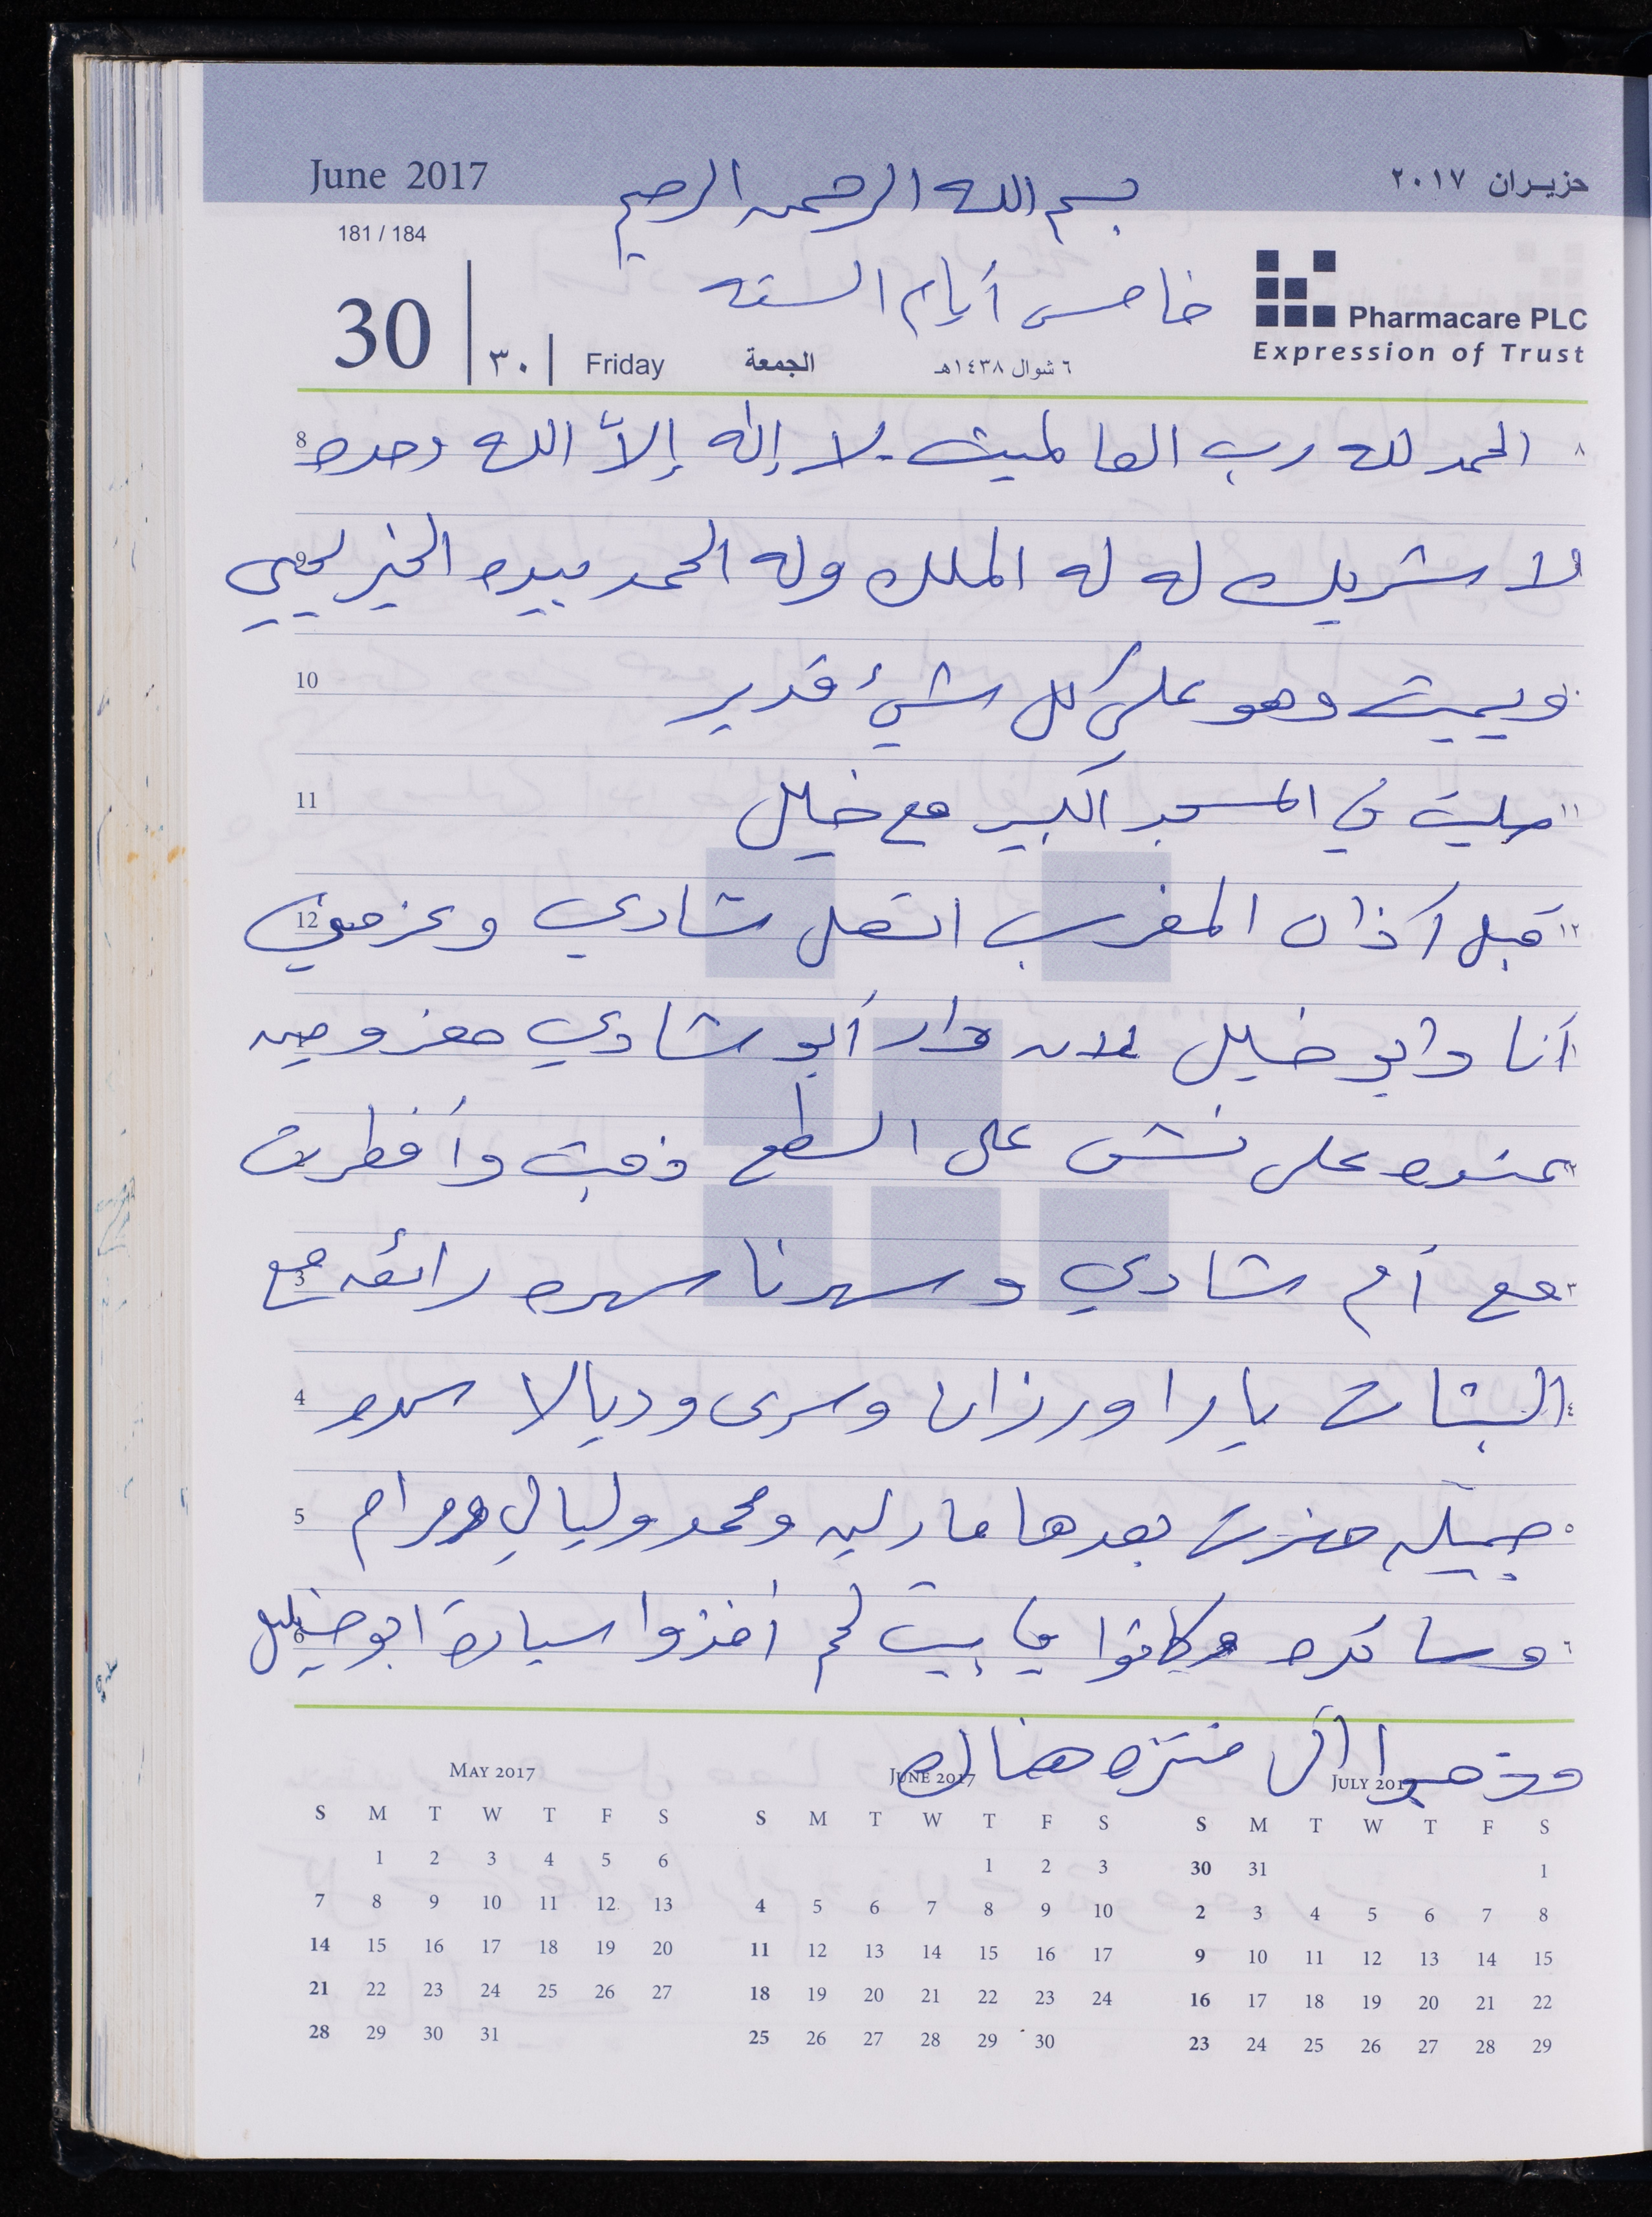 June 2017
حزيران ٢٠١٧
بسم الله الرحمن الرحيم
181 / 184
خامس أيام السته
Pharmacare PLC
Expression of Trust
30
٣٠
Friday
الجمعة
٦ شوال ١٤٣٨هـ
8 الحمد لله رب العالمين. لا إله إلاّ الله وحده ٨
لا شريك له له الملك وله الحمد بيده الخير يحيي
10 ويميت وهو على كل شيئ قدير
11 صليت في المسجد الكبير مع خليل ١١
12 قبل أذان المغرب اتصل شادي وعزمني ١٢
أنا وابو خليل لان دار أبو شادي معزومين
عنده على نش على السطح ذهبت وأفطرت
3 مع أم شادي وسهرنا سهره رائعه مع ٣
4 البنات يارا ورزان وسرى وديالا سهره ٤
5 جميله حضرت بعدها مادلين ومحمد وليالي ومرام ٥
6 وساكره وكانوا في بيت لحم أخذوا سيارة ابو خليل ٦
وذهبوا الى منتزه هناك
MAY 2017
S M T W T F S
1 2 3 4 5 6
7 8 9 10 11 12 13
14 15 16 17 18 19 20
21 22 23 24 25 26 27
28 29 30 31
JUNE 2017
S M T W T F S
1 2 3
4 5 6 7 8 9 10
11 12 13 14 15 16 17
18 19 20 21 22 23 24
25 26 27 28 29 30
JULY 2017
S M T W T F S
30 31 1
2 3 4 5 6 7 8
9 10 11 12 13 14 15
16 17 18 19 20 21 22
23 24 25 26 27 28 29